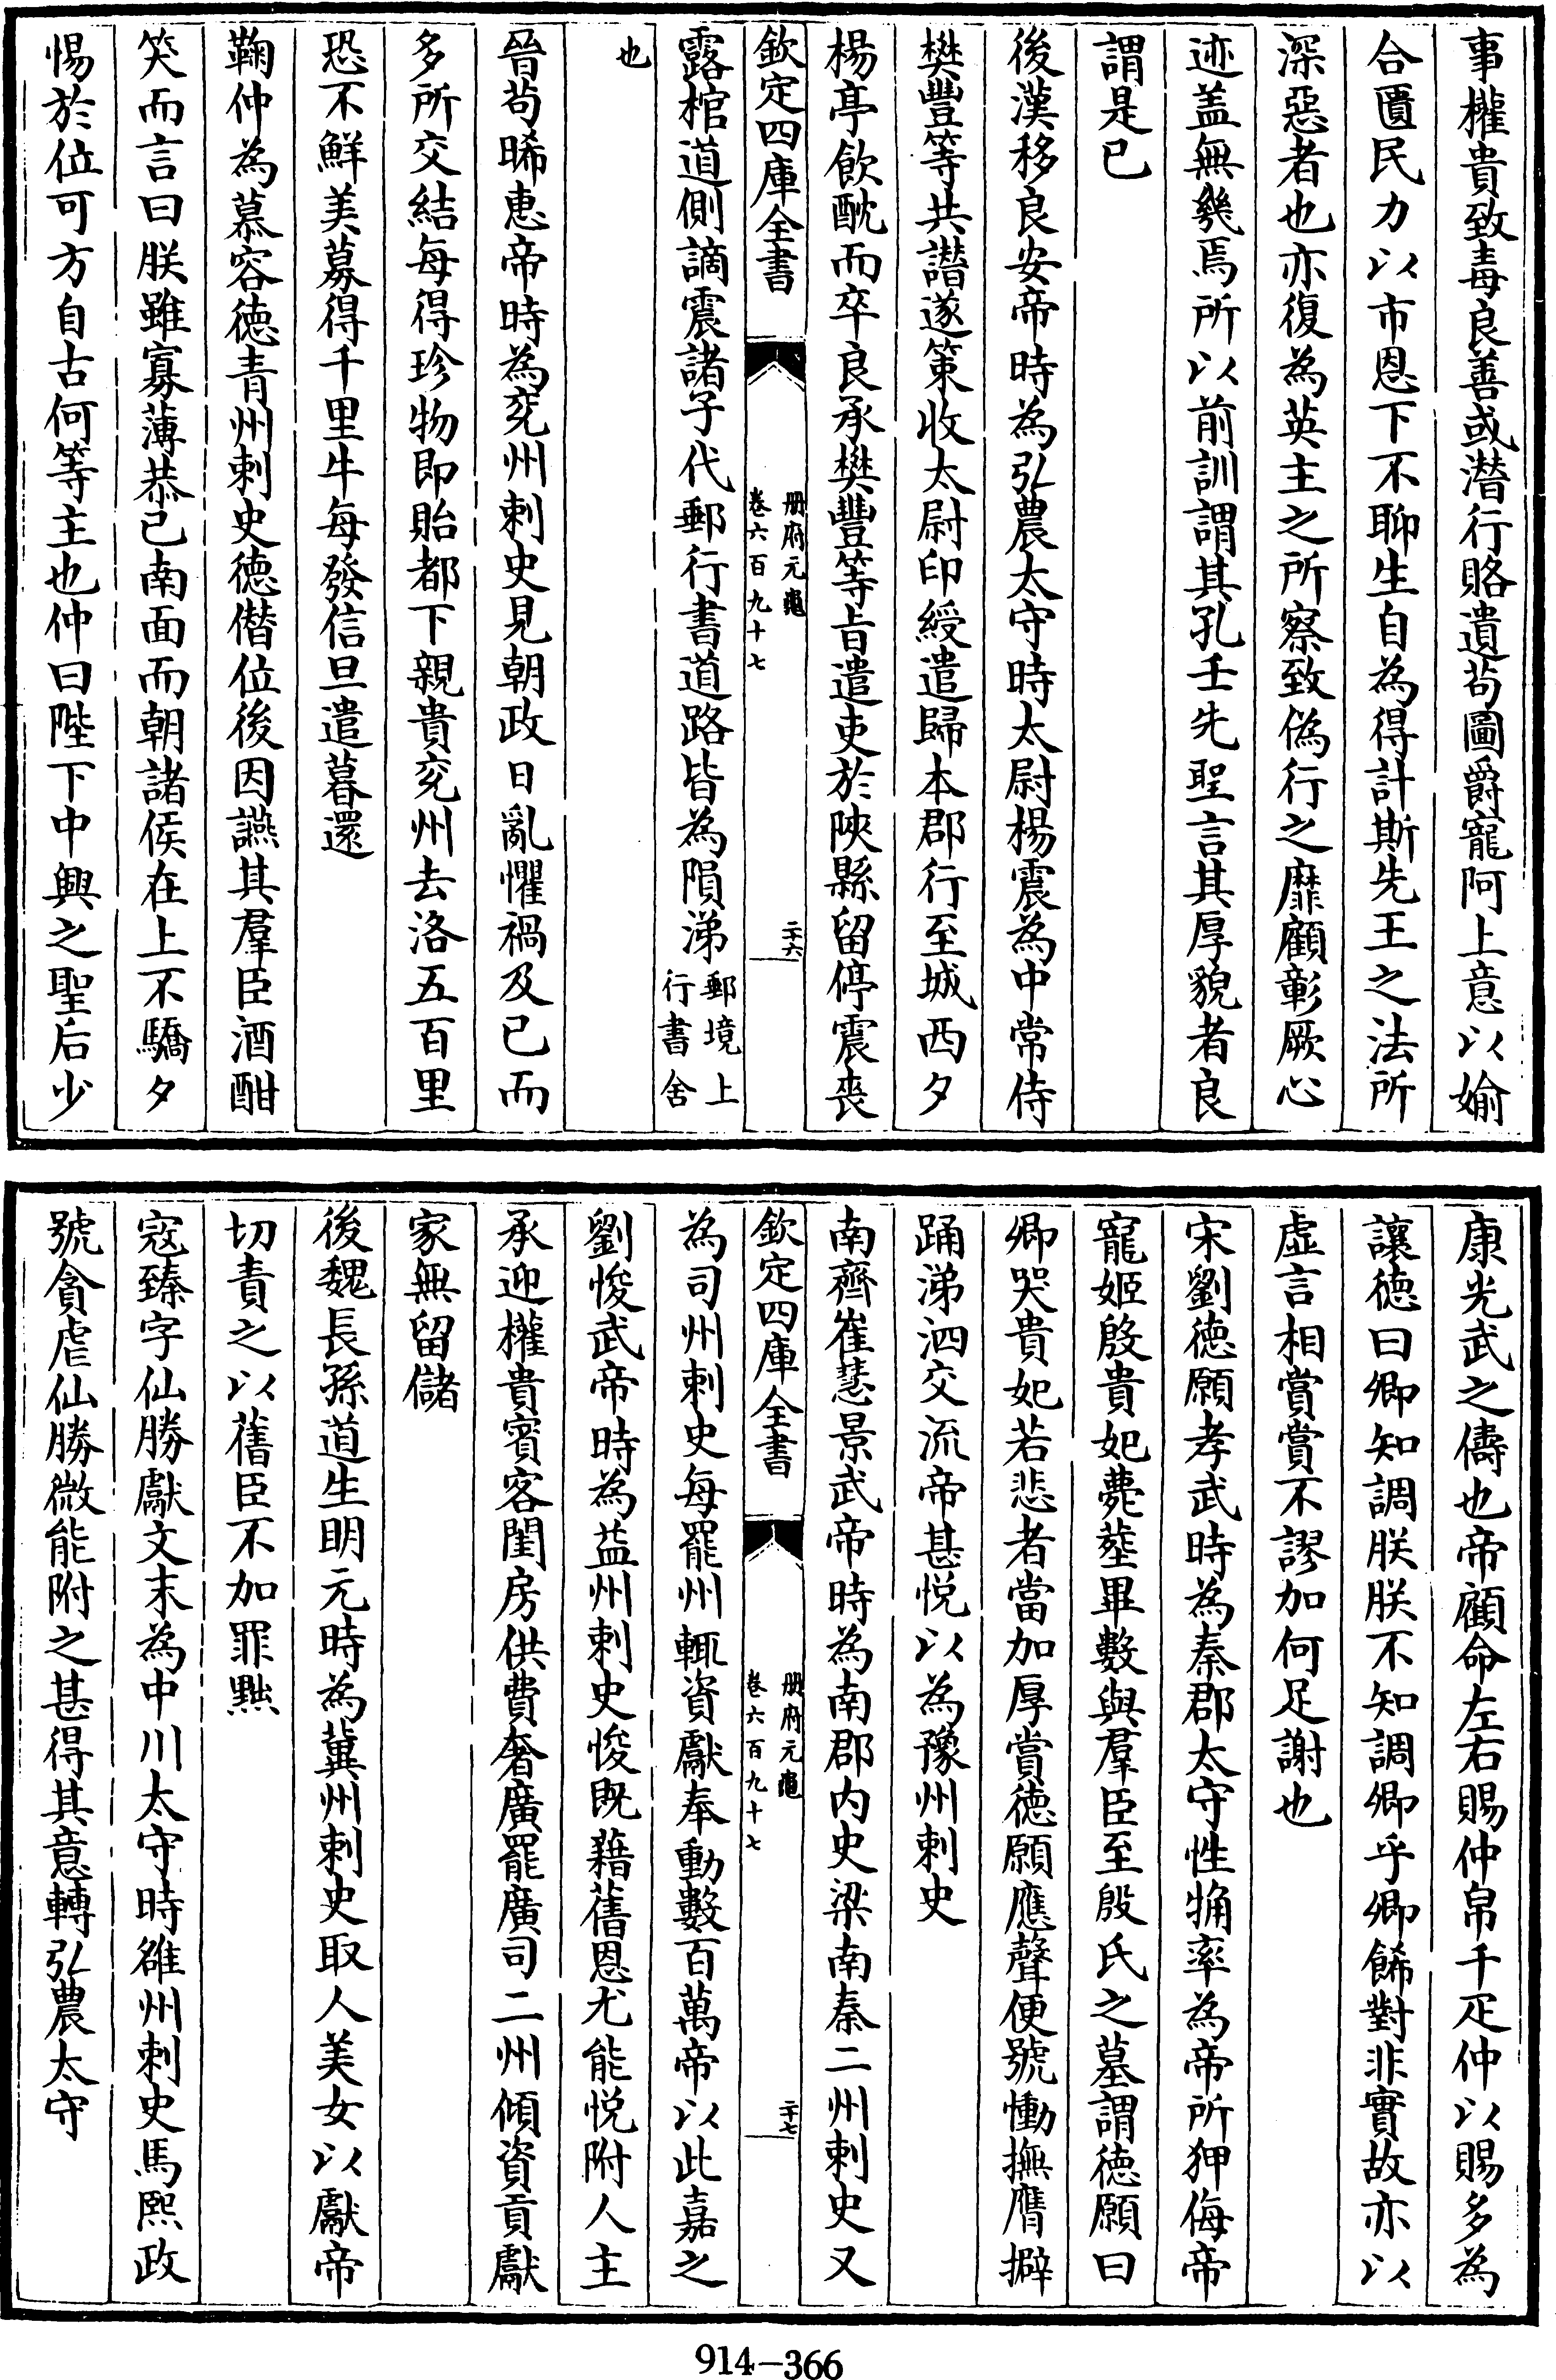 事權貴致毒良善或潜行賂遺茍圖爵寵阿上意以媮
合匱民力以市恩下不聊生自為得計斯先王之法所
深惡者也亦復為英主之所察致偽行之靡顧彰厥心
迹盖無幾焉所以前訓謂其孔壬先聖言其厚貌者良
謂是已
後漢移良安帝時為弘農太守時太尉楊震為中常侍
樊豐等共譛遂策收太尉印綬遣歸本郡行至城西夕
楊亭飲酖而卒良承樊豐等㫖遣吏於陜縣留停震喪
欽定四庫全書
册府元龜
卷六百九十七
二十六
露棺道側謫震諸子代郵行書道路皆為隕涕郵境上行書舍
也
晉茍晞惠帝時為兖州刺史見朝政日亂懼禍及已而
多所交結每得珍物即貽都下親貴兖州去洛五百里
恐不鮮美募得千里牛每發信旦遣暮還
鞠仲為慕容德青州刺史德僭位後因讌其羣臣酒酣
笑而言曰朕雖寡薄恭已南面而朝諸侯在上不驕夕
惕於位可方自古何等主也仲曰陛下中興之聖后少
康光武之儔也帝顧命左右賜仲帛千疋仲以賜多為
讓德曰卿知調朕朕不知調卿乎卿餙對非實故亦以
虚言相賞賞不謬加何足謝也
宋劉德願孝武時為秦郡太守性觕率為帝所狎侮帝
寵姬殷貴妃薨塟畢數與羣臣至殷氏之墓謂德願曰
卿哭貴妃若悲者當加厚賞德願應聲便號慟撫膺擗
踊涕泗交流帝甚悦以為豫州刺史
南齊崔慧景武帝時為南郡内史梁南秦二州刺史又
欽定四庫全書
册府元龜
卷六百九十七
二十七
為司州刺史每罷州輒資獻奉動數百萬帝以此嘉之
劉悛武帝時為益州刺史悛既藉舊恩尤能悦附人主
承迎權貴賓客閨房供費奢廣罷廣司二州傾資貢獻
家無留儲
後魏長孫道生明元時為冀州刺史取人美女以獻帝
切責之以舊臣不加罪黜
宼臻字仙勝獻文末為中川太守時雒州刺史馬熙政
號貪虐仙勝微能附之甚得其意轉弘農太守
914-366